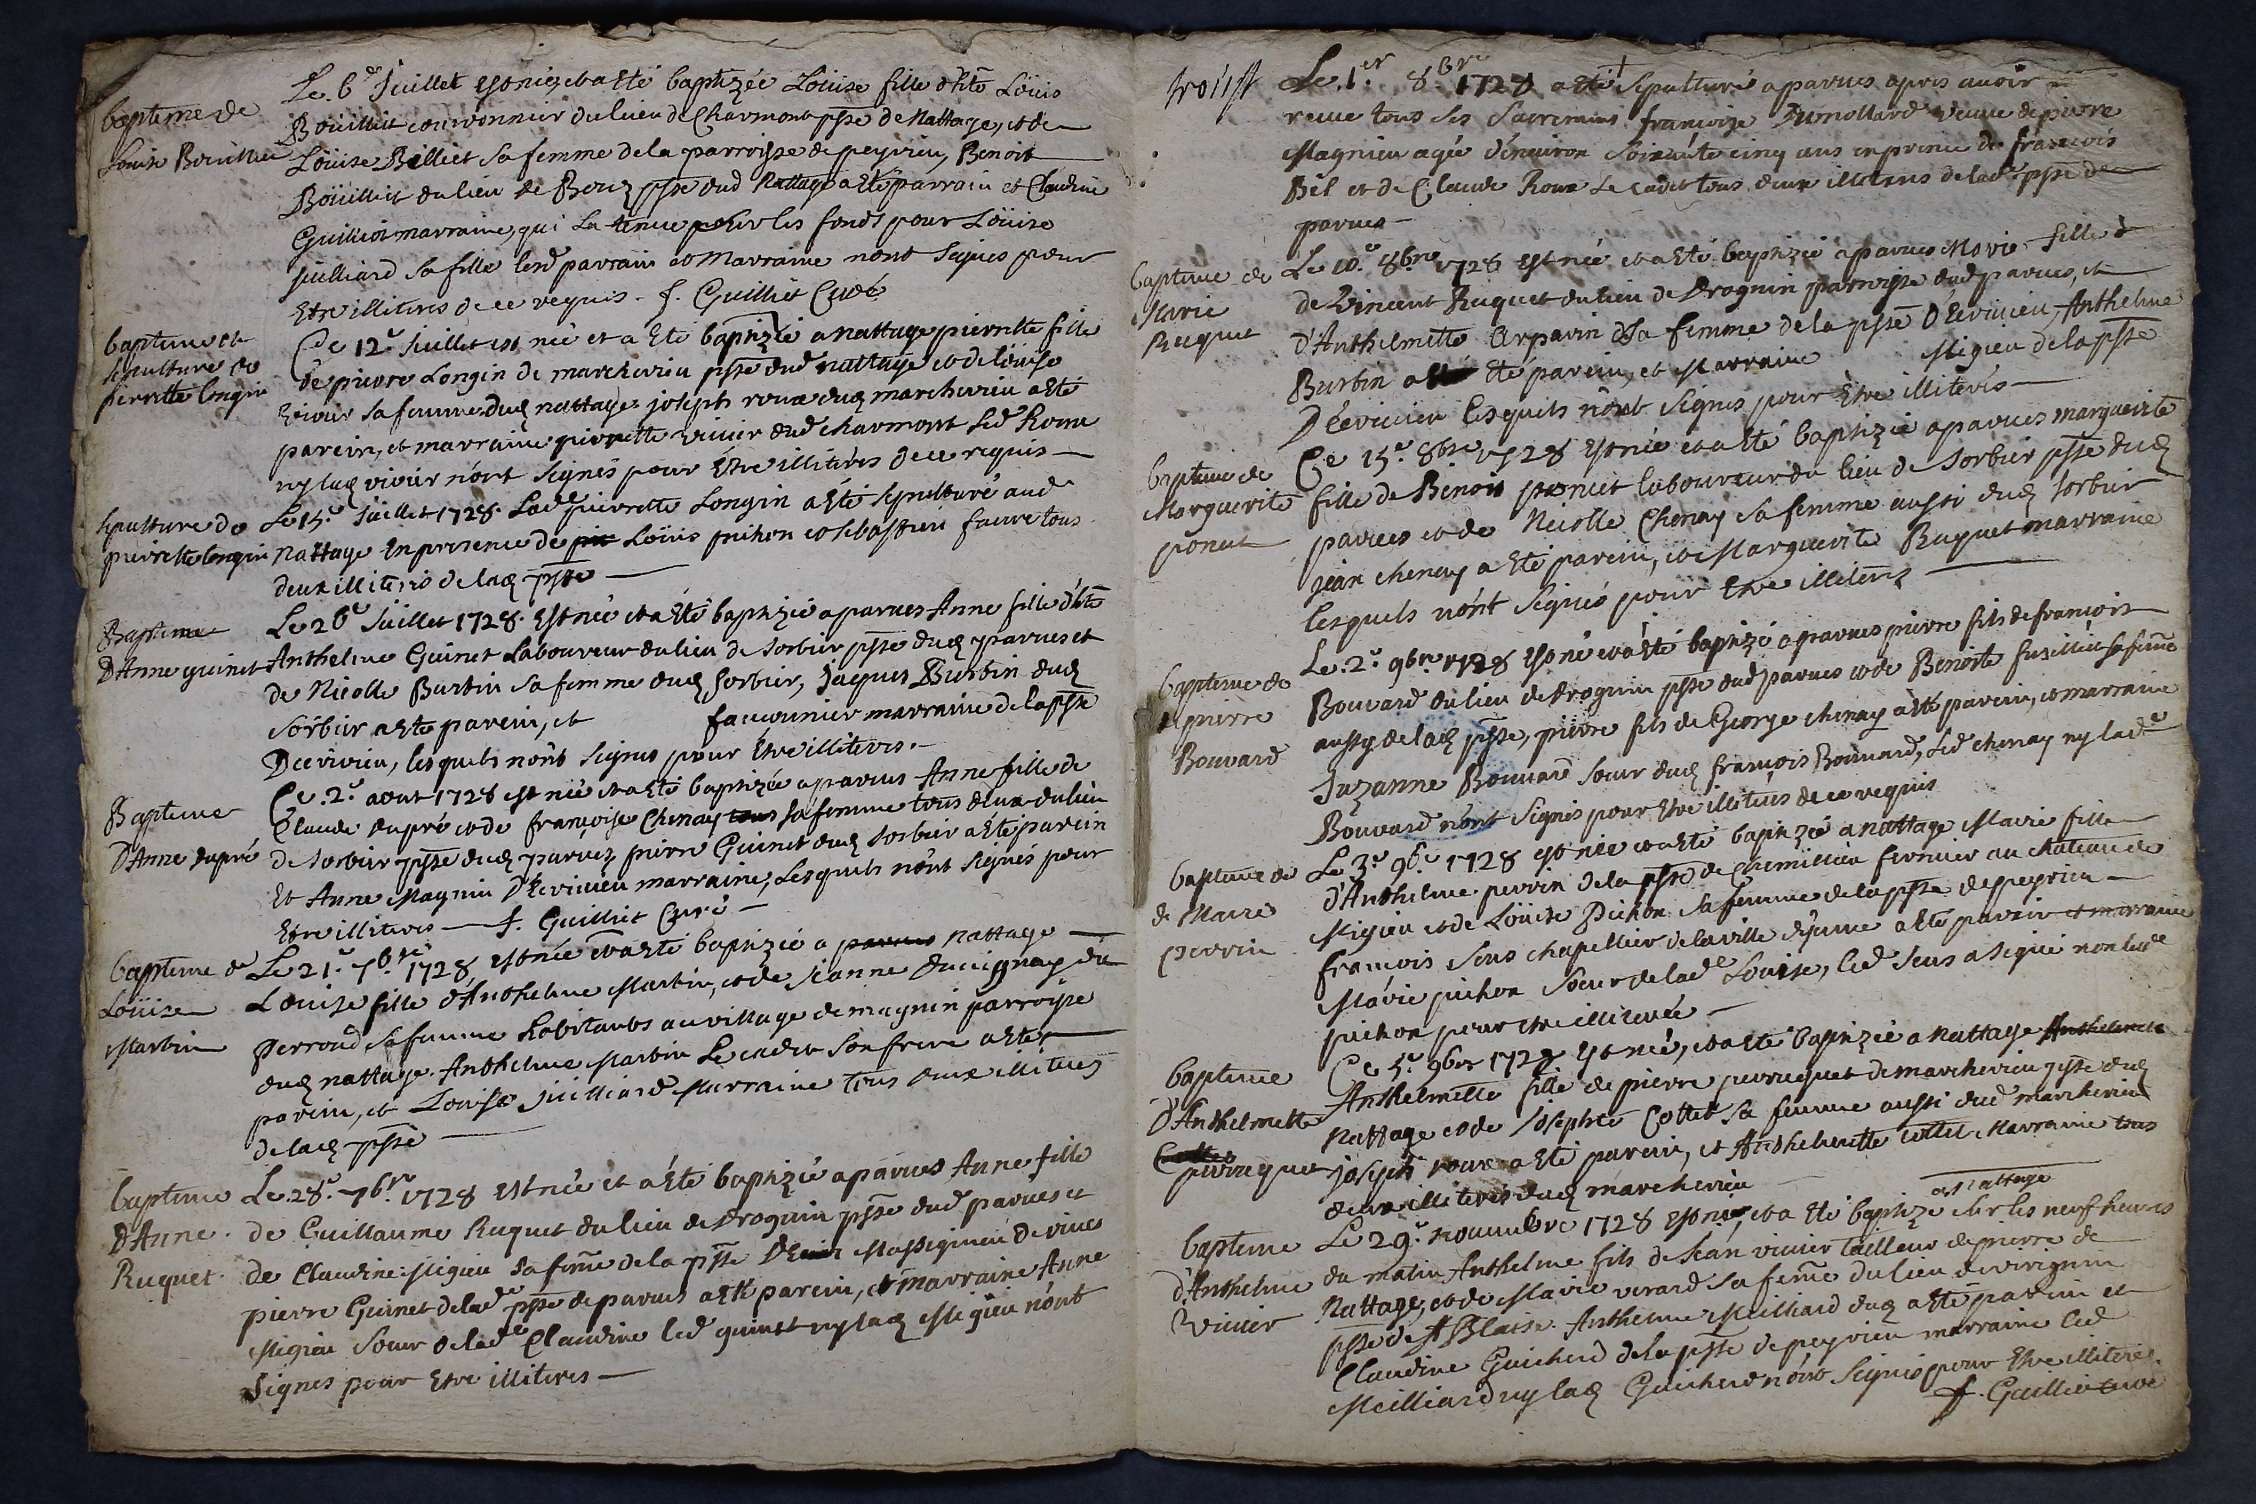 bapteme de
Louise Bouillier
Le 6e Juillet est née et a esté baptizée Loüise fille d'hte Loüis
Boüilliet couronnier du lieu de Charmont psse de Nattage, et de
Loüise Billiet sa femme de la parroisse de peyrieu, Benoit
Boüilliet du lieu de psse dud Nattage a esté parrain et Claudine
Guilliot marraine, qui la tenue pour les fonds pour Loüise
juilliard sa fille lesd parrain et Marraine nont signés pour
Etre illiterés de ce requis. f. Guilliet Curé
bapteme et
sepulture de
pierrette longin
Ce 12e Juillet est née et a esté baptizée a nattage pierrette fille
de pierre Longin de marcherieu psse dud nattage et de loüise
vivier sa femme dud nattage joseph roux dud marcherieu a esté
parein, et marraine pierrette vivier dud charmont led Roux
ny lad vivier n'ont signés pour être illiterés de ce requis
sepulture de
pierrette longin
Le 15e Juillet 1728. Lade pierrette Longin a esté sepulturé aud
Nattage en presence de Loüis pichon et sebastien faure tous
deux illiterés de lad psse
Bapteme
D'Anne guinet
Le 26e Juillet 1728. Est née et a esté baptizée a parves Anne fille d'hte
Anthelme Guinet Laboureur du lieu de Sorbier psse dud parves et
de Nicolle Burbin sa femme dud Sorbier, Jaques Burbin dud
Sorbier a esté parein, et fauconnier marraine de la psse
D'Evivieu, lesquels nont signés pour être illiterés.
Bapteme
D'Anne dupré
Ce 2e aout 1728 est née et a esté baptizée a parves Anne fille de
Claude dupré et de françoise Chenay tous sa femme tous deux du lieu
de Sorbier psse dud parves, pierre Guinet dud sorbier a esté parein
Et Anne Magnin D'Evivieu marraine, Lesquels n'ont signés pour
Etre illiterés f. Guilliet Curé
bapteme de
Loüise
Martin
Le 21e 7bre 1728, est née et a esté baptizée a parves nattage
Loüise fille d'Anthelme Martin, et de Jeanne Du
perroud sa femme habitants au village de magnin parroisse
dud nattage. Anthelme Martin Le cadet son frere a esté
parein, et Louise juilliard Marraine tous deux illiterés
de lad psse
bapteme
D'Anne
Ruquet
Le 28e 7bre 1728 est née et a esté baptizée a parves Anne fille
de Guillaume Ruquet du lieu de drognin psse dud parves et
de Claudine Migieu sa feme de la psse Massignieu de rives
pierre Guinet de lade psse de parves a esté parein, et marraine Anne
Migieu soeur de lade Claudine led guinet ny lad Migieu n'ont
Signés pour Etre illiterés
troisst
Le 1er 8bre 1728 a esté Sepulturé a parves apres avoir
receu tous ses Sacremens françoise Dumollard veuve de pierre
Magnieu agée d'environ soixante cinq ans en presence de françois
Bél et de Claude Roux Le Cadet tous deux illiterés de lade psse de
parves
bapteme de
Marie
Ruquet
Le 10e 8bre 1728 est née et a esté baptizée a parves Marie fille
de Vincent Ruquet du lieu de drognin parroisse dud parves, et
d'Anthelmette Carpavin sa femme de la psse D'Evivieu, Anthelme
Burbin a été parein, et Marraine Migieu de la psse
D'Evivieu lesquels n'ont signés pour être illiterés
bapteme de
Marguerite
ponet
Ce 15e 8bre 1728 est née et a esté baptizée a parves marguerite
fille de Benoit ponet laboureur du lieu de Sorbier psse dud
parves et de Nicolle Chenay sa femme aussi dud sorbier
jean chenay a esté parein, et Marguerite Ruquet marraine
lesquels n'ont signés pour être illiterés
bapteme de
pierre
Bouvard
Le 2e 9bre 1728 est né et a esté baptizé a parves pierre fils de françois
Bouvard du lieu de drognin psse dud parves et de Benoite fusilliet sa feme
aussy de lad psse, pierre fils de George chenay a esté parein, et marraine
Suzanne Bouvard soeur dud françois Bouvard, led chenay ny lade
Bouvard n'ont signés pour être illiterés de ce requis
bapteme de
de Marie
perrin
Le 3e 9bre 1728 est née et a esté baptizée a nattage Marie fille
d'Anthelme perrin de la psse de Chemillieu fermier au château de
Migieu et de Loüise Pichon sa femme de la psse de peyrieu
françois Sens chapellier de la ville d'yenne a esté parein et marraine
Marie pichon soeur de lade Loüise, led Sens a signé non lade
pichon pour etre illiterée
bapteme
D'Anthelmette
Cottet
perruquet
Ce 5e 9bre 1728 est née, et a esté baptizée a Nattage Anthelmette
Anthelmette fille de pierre perruquet de marcherieu psse dud
Nattage et de Josephte Cottet sa femme aussi dud marcherieu
joseph roux a esté parein, et Anthelmette cottet Marraine tous
deux illiterés dud marcherieu
bapteme
d'Anthelme
Vivier
a Nattage
Le 29e novembre 1728 est né, et a esté baptizé sur les neuf heures
du matin Anthelme fils de Jean vivier tailleur de pierre de
Nattage, et de Marie verard sa feme du lieu de virignin
psse de St Blaise. Anthelme Meilliard dud a esté parein et
Claudine Guicherd de la psse de peyrieu marraine led
Meilliard ny lad Guicherd n'ont signés pour être illiterés.
f. Guilliet curé